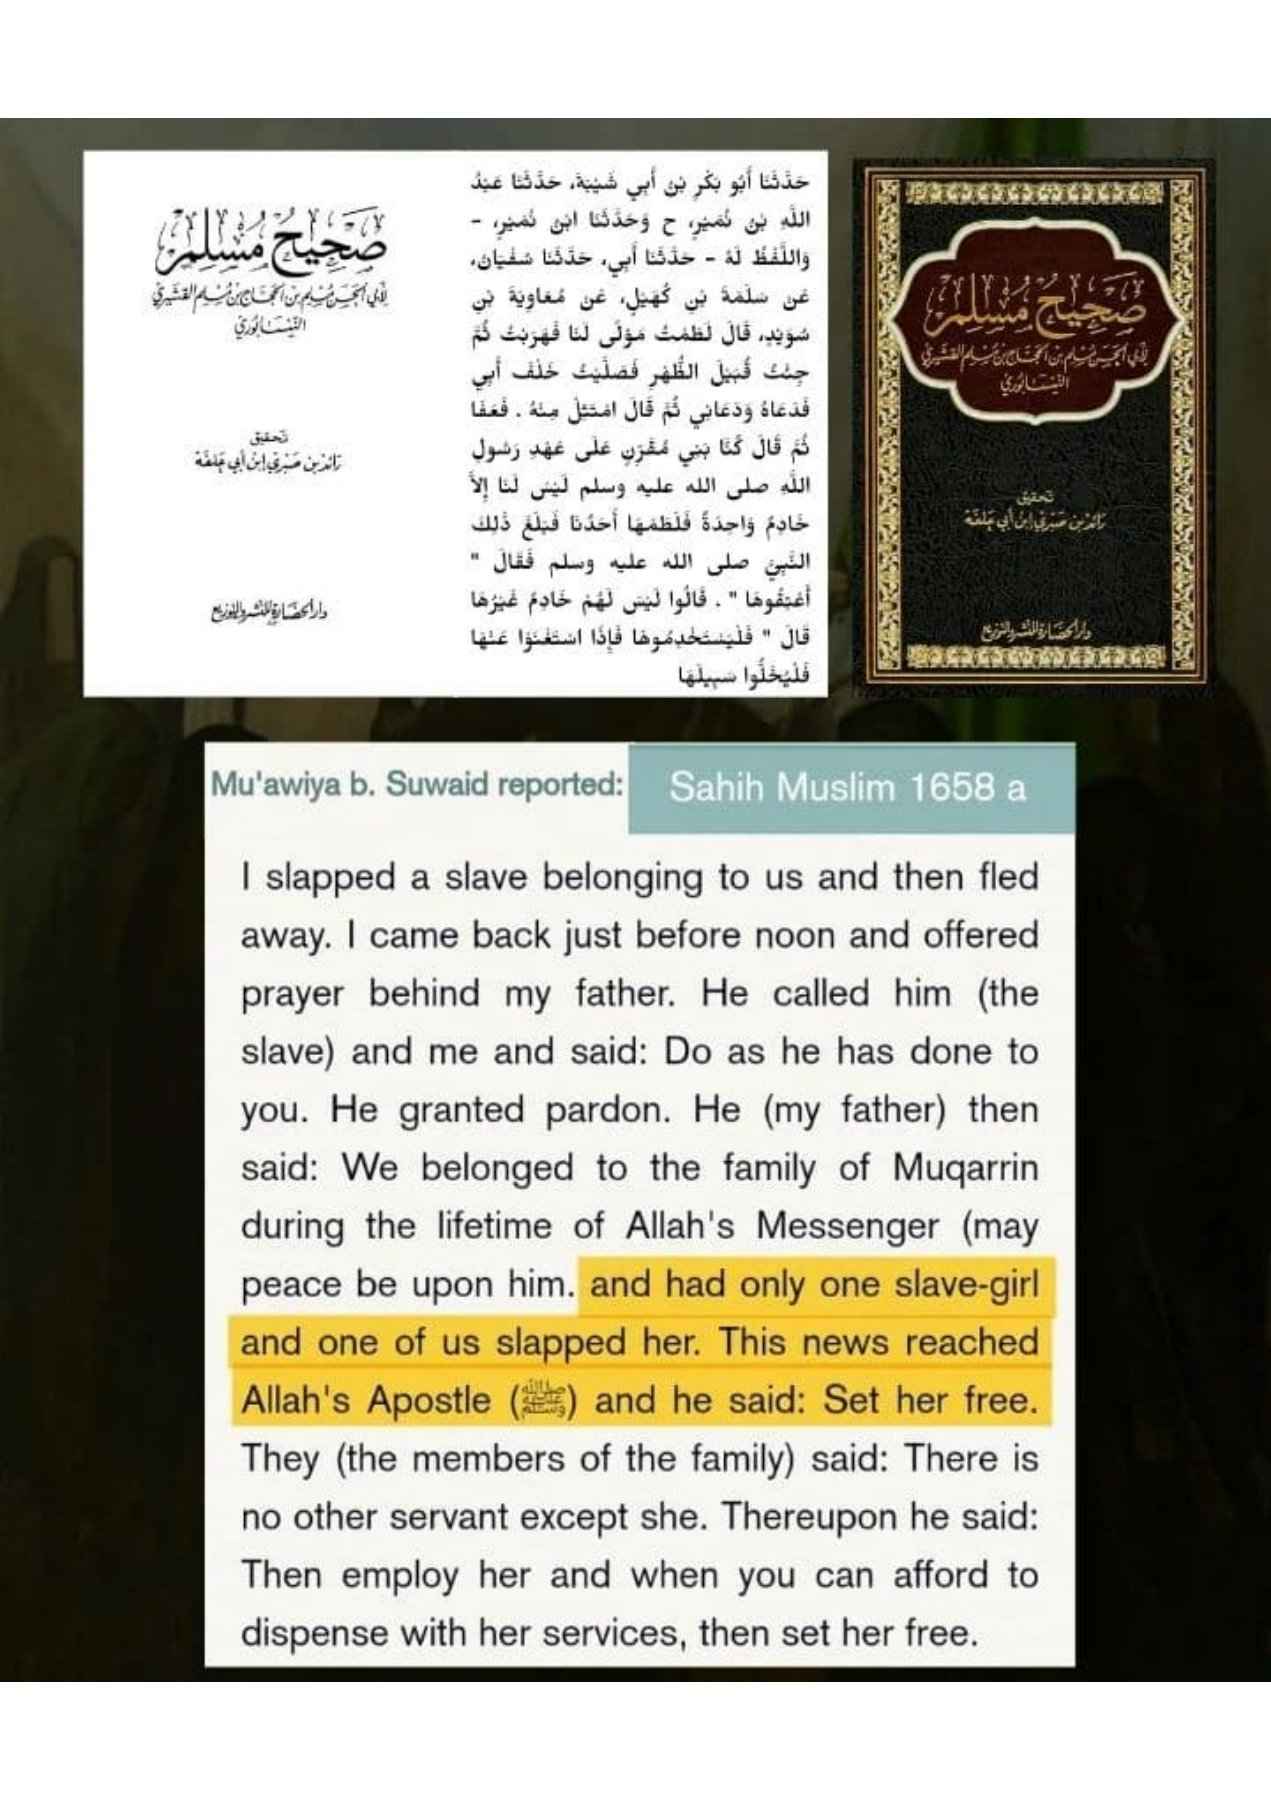 صَحِيحُ مُسْلِمٍ
لأبي الحسين مسلم بن الحجاج بن مسلم القشيري
النيسابوري
تحقيق
رائد بن صبري ابن أبي علفة
دار الحضارة للنشر والتوزيع
حَدَّثَنَا أَبُو بَكْرِ بْنُ أَبِي شَيْبَةَ، حَدَّثَنَا عَبْدُ
اللَّهِ بْنُ نُمَيْرٍ، ح وَحَدَّثَنَا ابْنُ نُمَيْرٍ، -
وَاللَّفْظُ لَهُ - حَدَّثَنَا أَبِي، حَدَّثَنَا سُفْيَانُ،
عَنْ سَلَمَةَ بْنِ كُهَيْلٍ، عَنْ مُعَاوِيَةَ بْنِ
سُوَيْدٍ، قَالَ لَطَمْتُ مَوْلًى لَنَا فَهَرَبْتُ ثُمَّ
جِئْتُ قُبَيْلَ الظُّهْرِ فَصَلَّيْتُ خَلْفَ أَبِي
فَدَعَاهُ وَدَعَانِي ثُمَّ قَالَ امْتَثِلْ مِنْهُ . فَعَفَا
ثُمَّ قَالَ كُنَّا بَنِي مُقَرِّنٍ عَلَى عَهْدِ رَسُولِ
اللَّهِ صلى الله عليه وسلم لَيْسَ لَنَا إِلاَّ
خَادِمٌ وَاحِدَةٌ فَلَطَمَهَا أَحَدُنَا فَبَلَغَ ذَلِكَ
النَّبِيَّ صلى الله عليه وسلم فَقَالَ "
أَعْتِقُوهَا " . قَالُوا لَيْسَ لَهُمْ خَادِمٌ غَيْرُهَا
قَالَ " فَلْيَسْتَخْدِمُوهَا فَإِذَا اسْتَغْنَوْا عَنْهَا
فَلْيُخَلُّوا سَبِيلَهَا
صَحِيحُ مُسْلِمٍ
لأبي الحسين مسلم بن الحجاج بن مسلم القشيري
النيسابوري
تحقيق
رائد بن صبري ابن أبي علفة
دار الحضارة للنشر والتوزيع
Mu'awiya b. Suwaid reported:
Sahih Muslim 1658 a
I slapped a slave belonging to us and then fled
away. I came back just before noon and offered
prayer behind my father. He called him (the
slave) and me and said: Do as he has done to
you. He granted pardon. He (my father) then
said: We belonged to the family of Muqarrin
during the lifetime of Allah's Messenger (may
peace be upon him. and had only one slave-girl
and one of us slapped her. This news reached
Allah's Apostle (ﷺ) and he said: Set her free.
They (the members of the family) said: There is
no other servant except she. Thereupon he said:
Then employ her and when you can afford to
dispense with her services, then set her free.